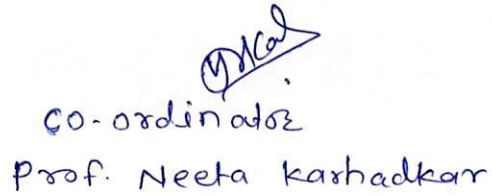 Co-ordinator
Prof. Neeta Karhadkar